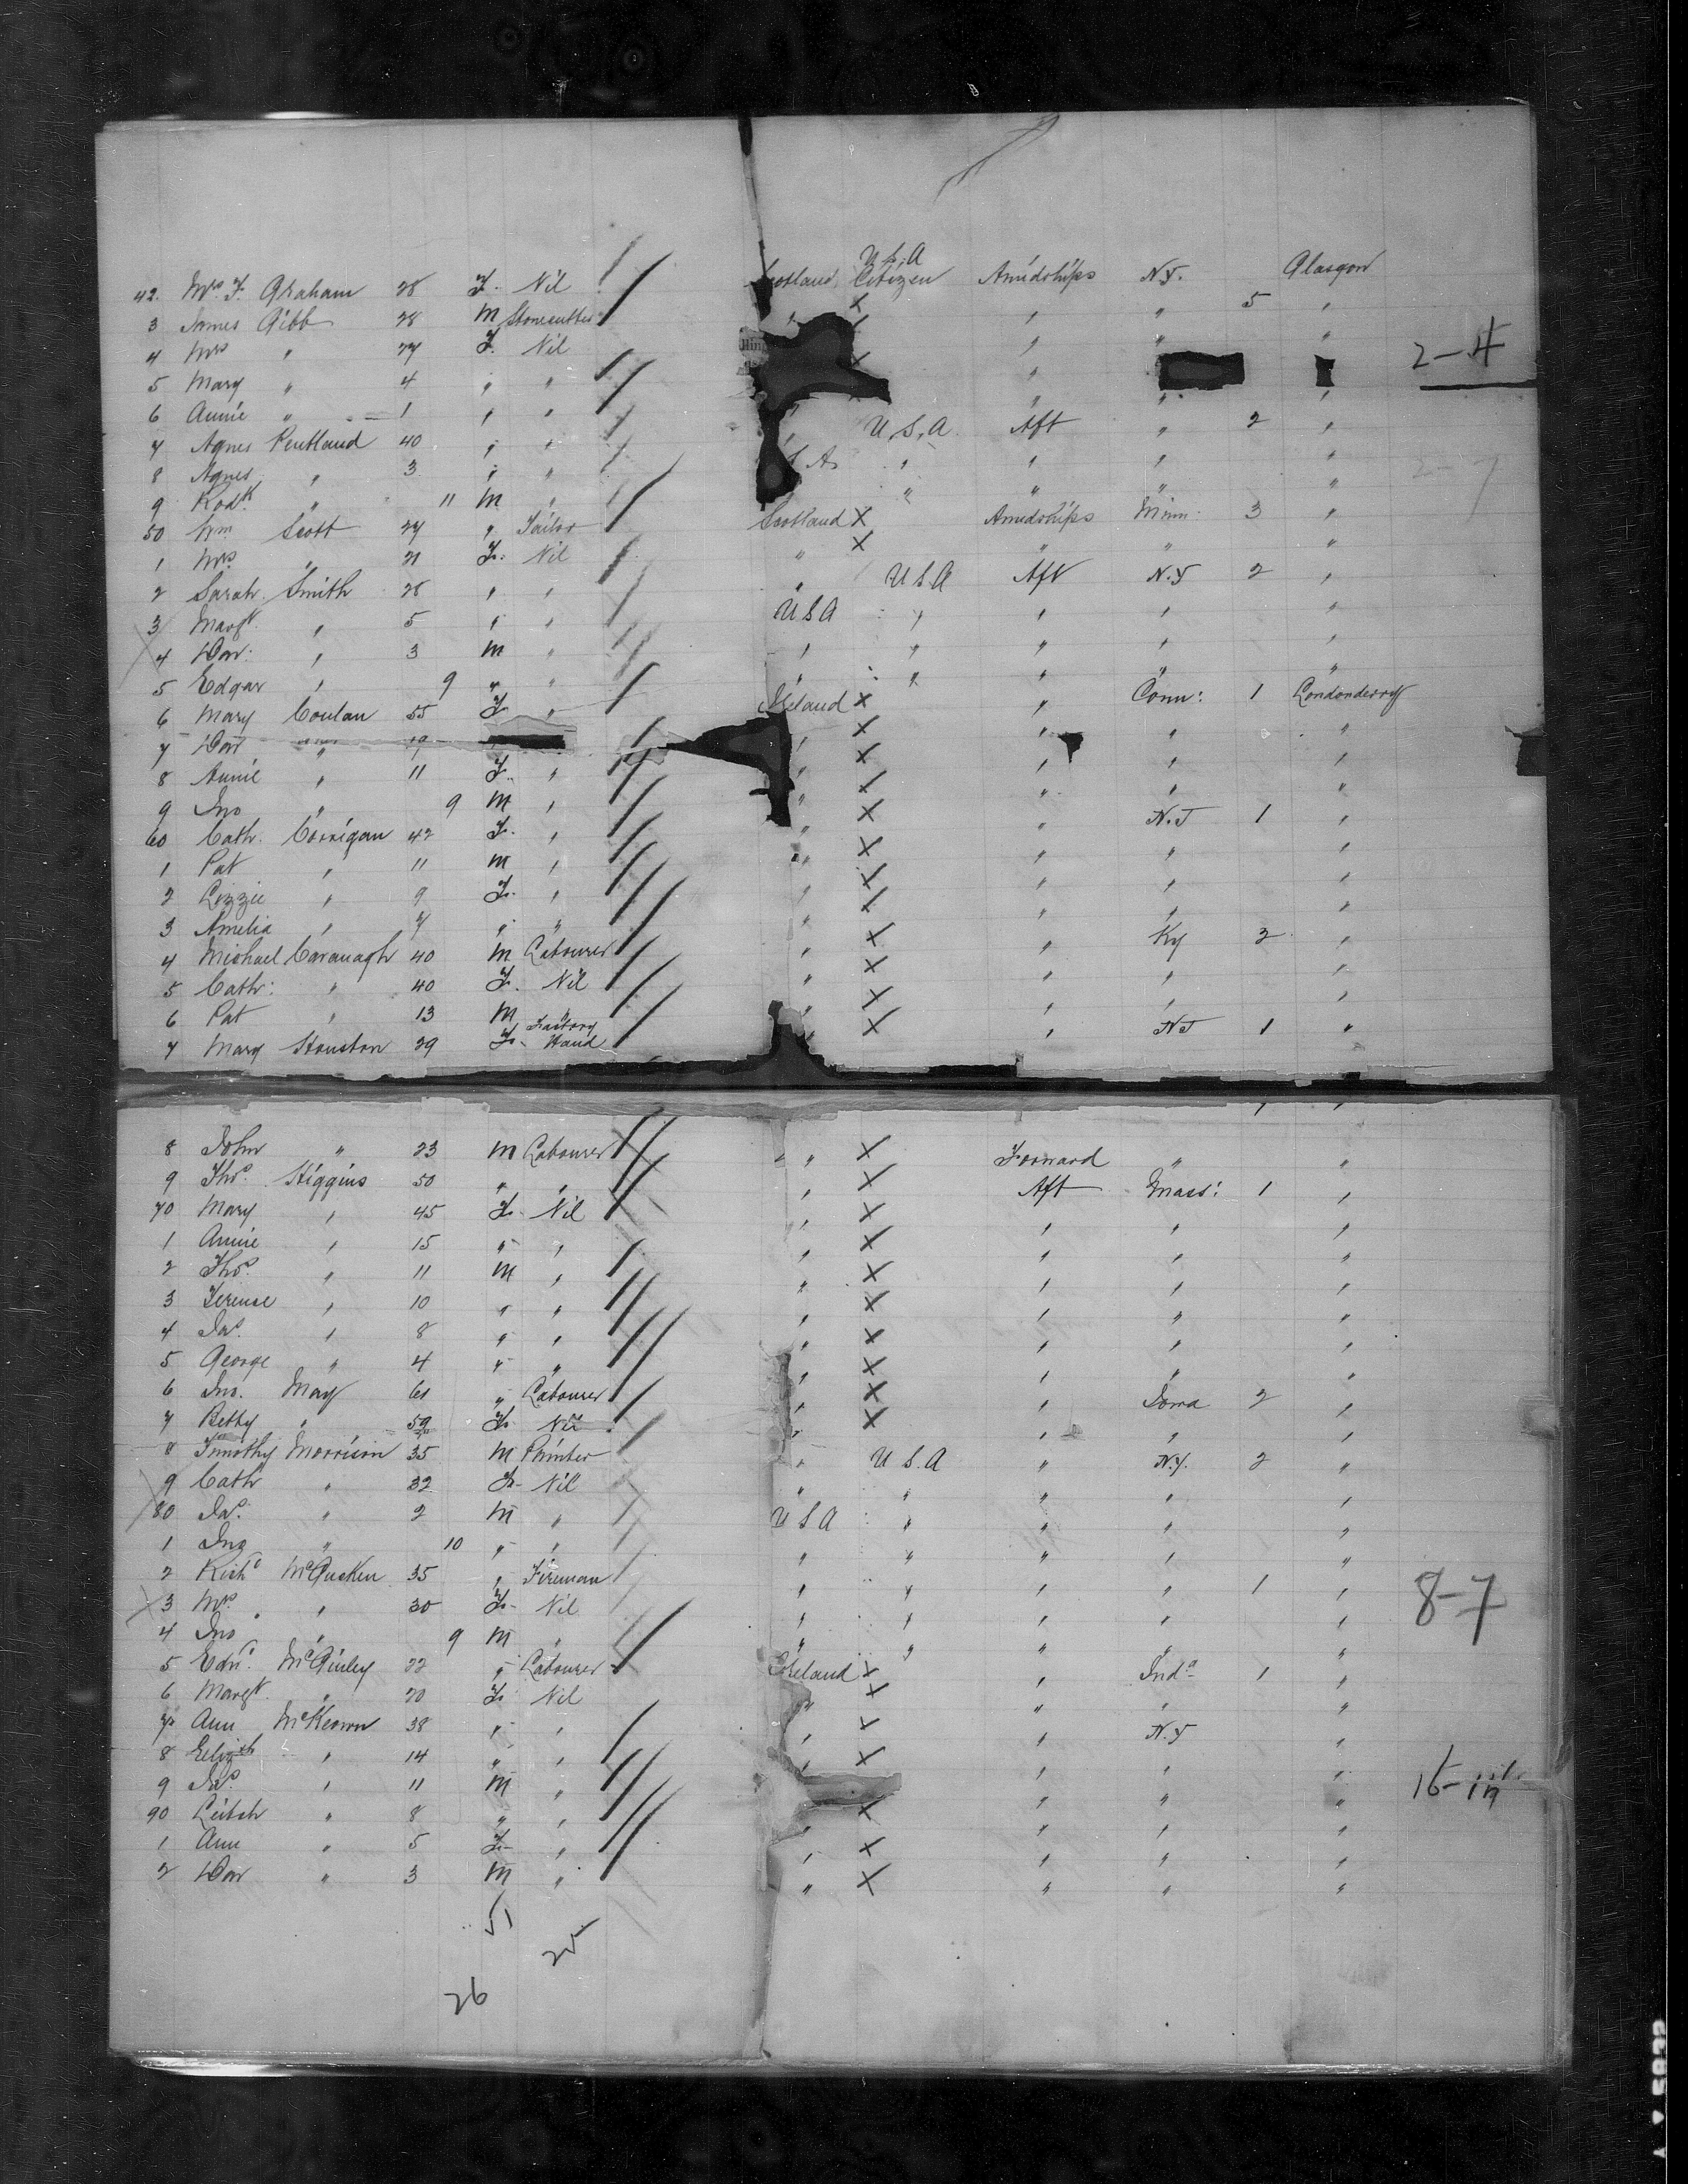 42. Mrs F. Graham 28 F. Nil Scotland U.S.A Citizen Amidships N.Y. Glasgow
3 James Gibb 28 M Stonecutter " X " " 5 "
4 Mrs " 27 F. Nil " " "
5 Mary " 4 " " X "
6 Annie " 1 " " " " " "
7 Agnes Pentland 40 " " " U.S.A. Aft " 2 "
8 Agnes " 3 " " S A " " " "
9 Rodk " 11 M " " " " "
50 Wm Scott 27 " Tailor Scotland X Amidships Minn. 3 "
1 Mrs " 21 F. Nil " X " " "
2 Sarah Smith 28 " " " U S A Aft N.Y 2 "
3 Margt " 5 " " U S A " " " "
4 Wm: " 3 M " " " " " "
5 Edgar " 9 " " " " " " "
6 Mary Conlan 55 F " Ireland X " Conn: 1 Londonderry
7 Wm " 19 " X " " "
8 Annie " 11 F. " " X " " "
9 Jno " 9 M " " X " " "
60 Cath. Corrigan 42 F. " " X " N.J 1 "
1 Pat " 11 M " " X " " "
2 Lizzie " 9 F. " " X " " "
3 Amelia " 7 " " " X " " "
4 Michael Cavanagh 40 M Labourer " X " Ky 2 "
5 Cath: " 40 F. Nil " X " " "
6 Pat " 13 M " " X " " "
7 Mary Houston 29 F. Factory Hand " X " N J 1 "
2-4
8 John " 23 M Labourer " X Forward " "
9 Thos. Higgins 50 " " " X Aft Mass: 1 "
70 Mary " 45 F. Nil " X " " "
1 Annie " 15 " " " X " " "
2 Thos. " 11 M " " X " " "
3 Terence " 10 " " " X " " "
4 Jas. " 8 " " " X " " "
5 George " 4 " " " X " " "
6 Jno. May 61 " Labourer " X " Iowa 2 "
7 Betty " 59 F. Nil " X " " "
8 Timothy Morrison 35 M Printer " U S.A " N.Y. 2 "
9 Cath " 32 F. Nil " " " " "
80 Jas. " 2 M " U S A " " " "
1 Jno " 10 " " " " " " "
2 Richd McQucken 35 " Fireman " " " " 1 "
3 Mrs. " 30 F. Nil " " " " "
4 Jno " 9 M " " " " " "
5 Edwd. McGinley 22 " Labourer Ireland X " Inda 1 "
6 Margt. " 20 F. Nil " X " " "
7 Ann McKeown 38 " " " X " N.Y "
8 Elizth " 14 " " " X " " "
9 Jas. " 11 M " " " " "
90 Leitch " 8 " " " X " " "
1 Ann " 5 F. " " X " " "
2 Wm " 3 M " " X " " "
8-7
51
25
26